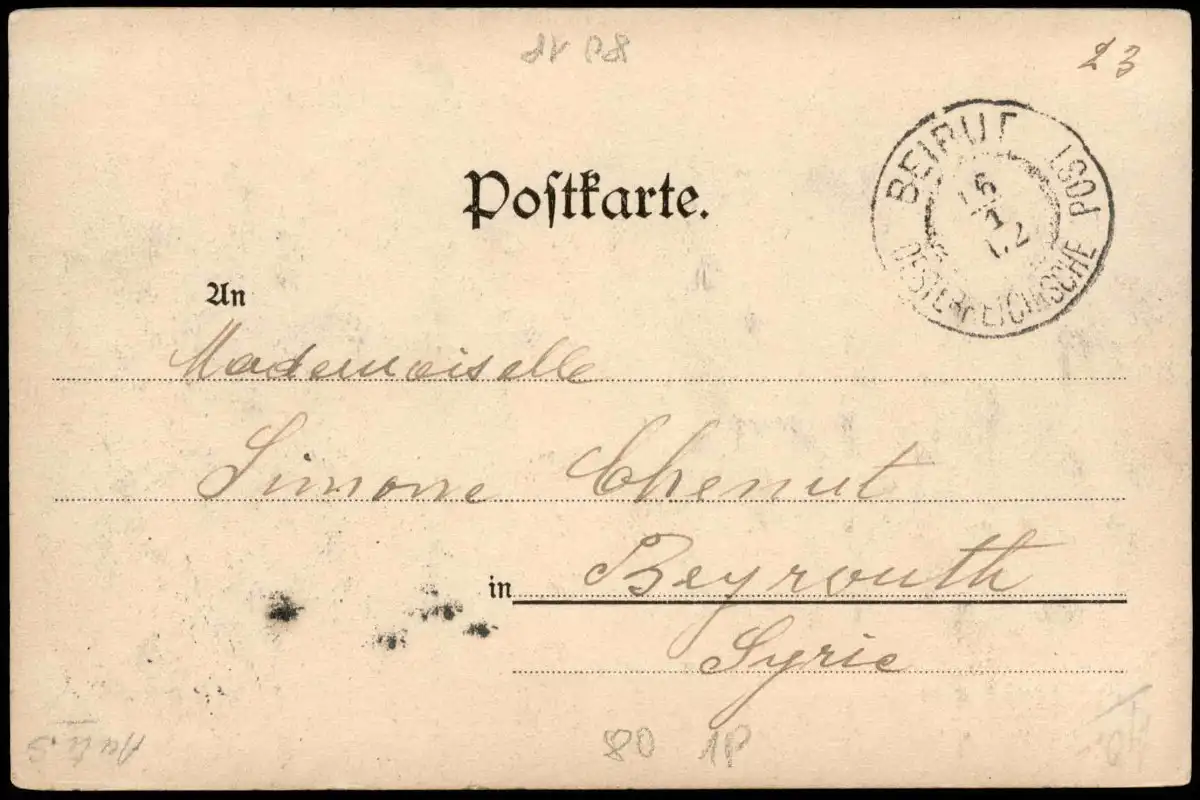 23
BEIRUT
16
1
02
OESTERREICHISCHE POST
Postkarte.
An
Mademoiselle
Simone Chenut
in Beyrouth
Syrie
80 1P